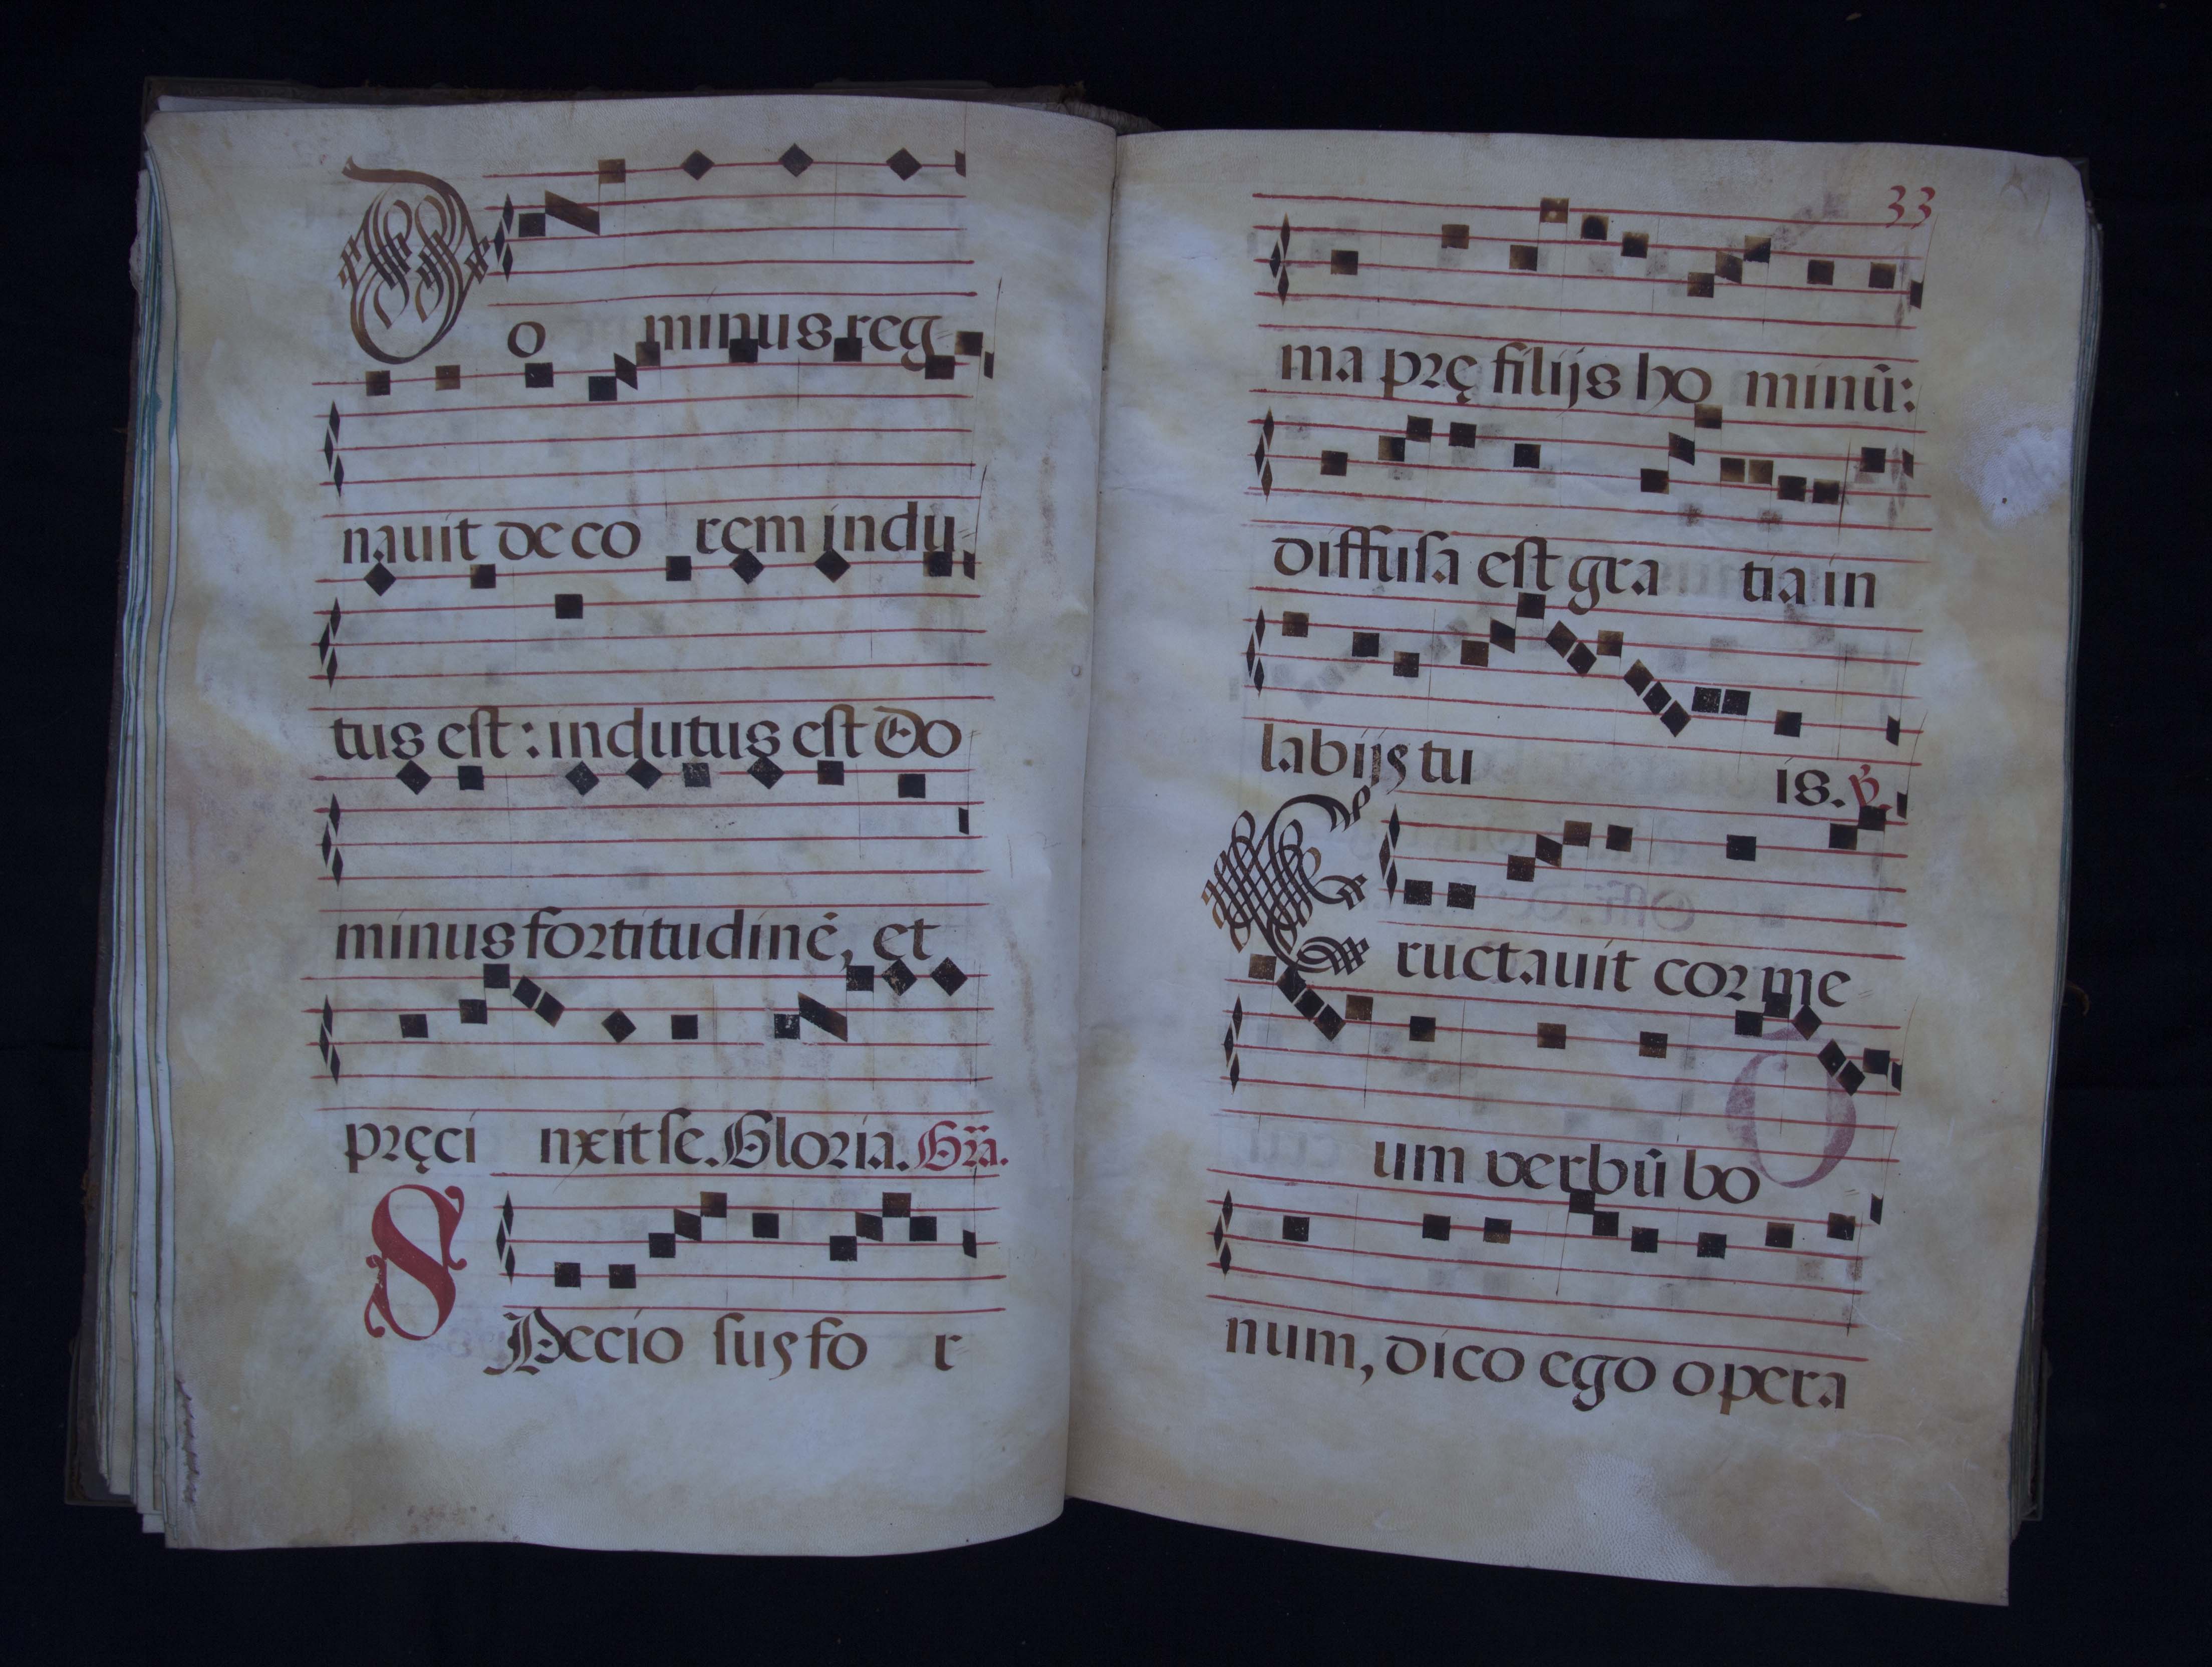 Do minus reg
nauit decorem indu
tus est: indutus est Do
minus fortitudinē, et
pręci nxit se. Gloria. Gra.
SPecio sus fo r
33
ma prę filijs ho minū:
diffusa est gra tia in
labijs tu is. ℣.
Eructauit cor me
um verbū bo
num, dico ego opera